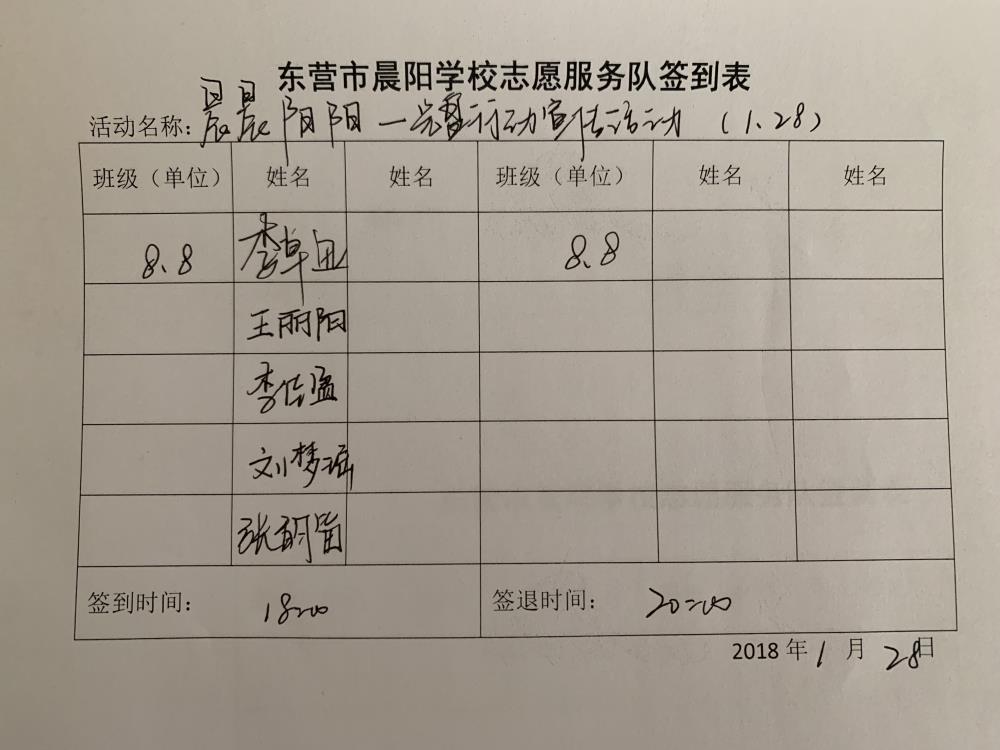 东营市晨阳学校志愿服务队签到表
活动名称：晨晨阳阳一元暨行动宣传活动 （1.28）
班级（单位） 姓名 姓名 班级（单位） 姓名 姓名
8.8 李卓 8.8
王丽阳
李佳溫
刘梦瑶
张
签到时间： 18:00 签退时间： 20:00
2018年1月28日